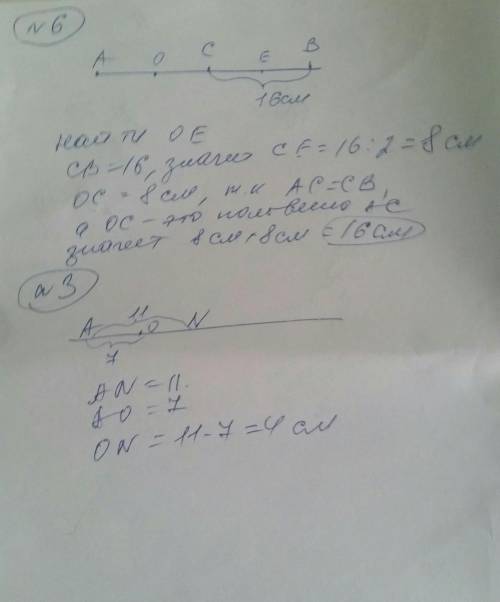 №6
A O C E B
16см
найти OE
CB=16, значит CE=16:2=8 см
OC = 8 см, т.к AC=CB,
а OC - это половина AC
значит 8см+8см = 16см
№3
11
A O N
7
AN = 11.
AO = 7
ON = 11-7=4 см